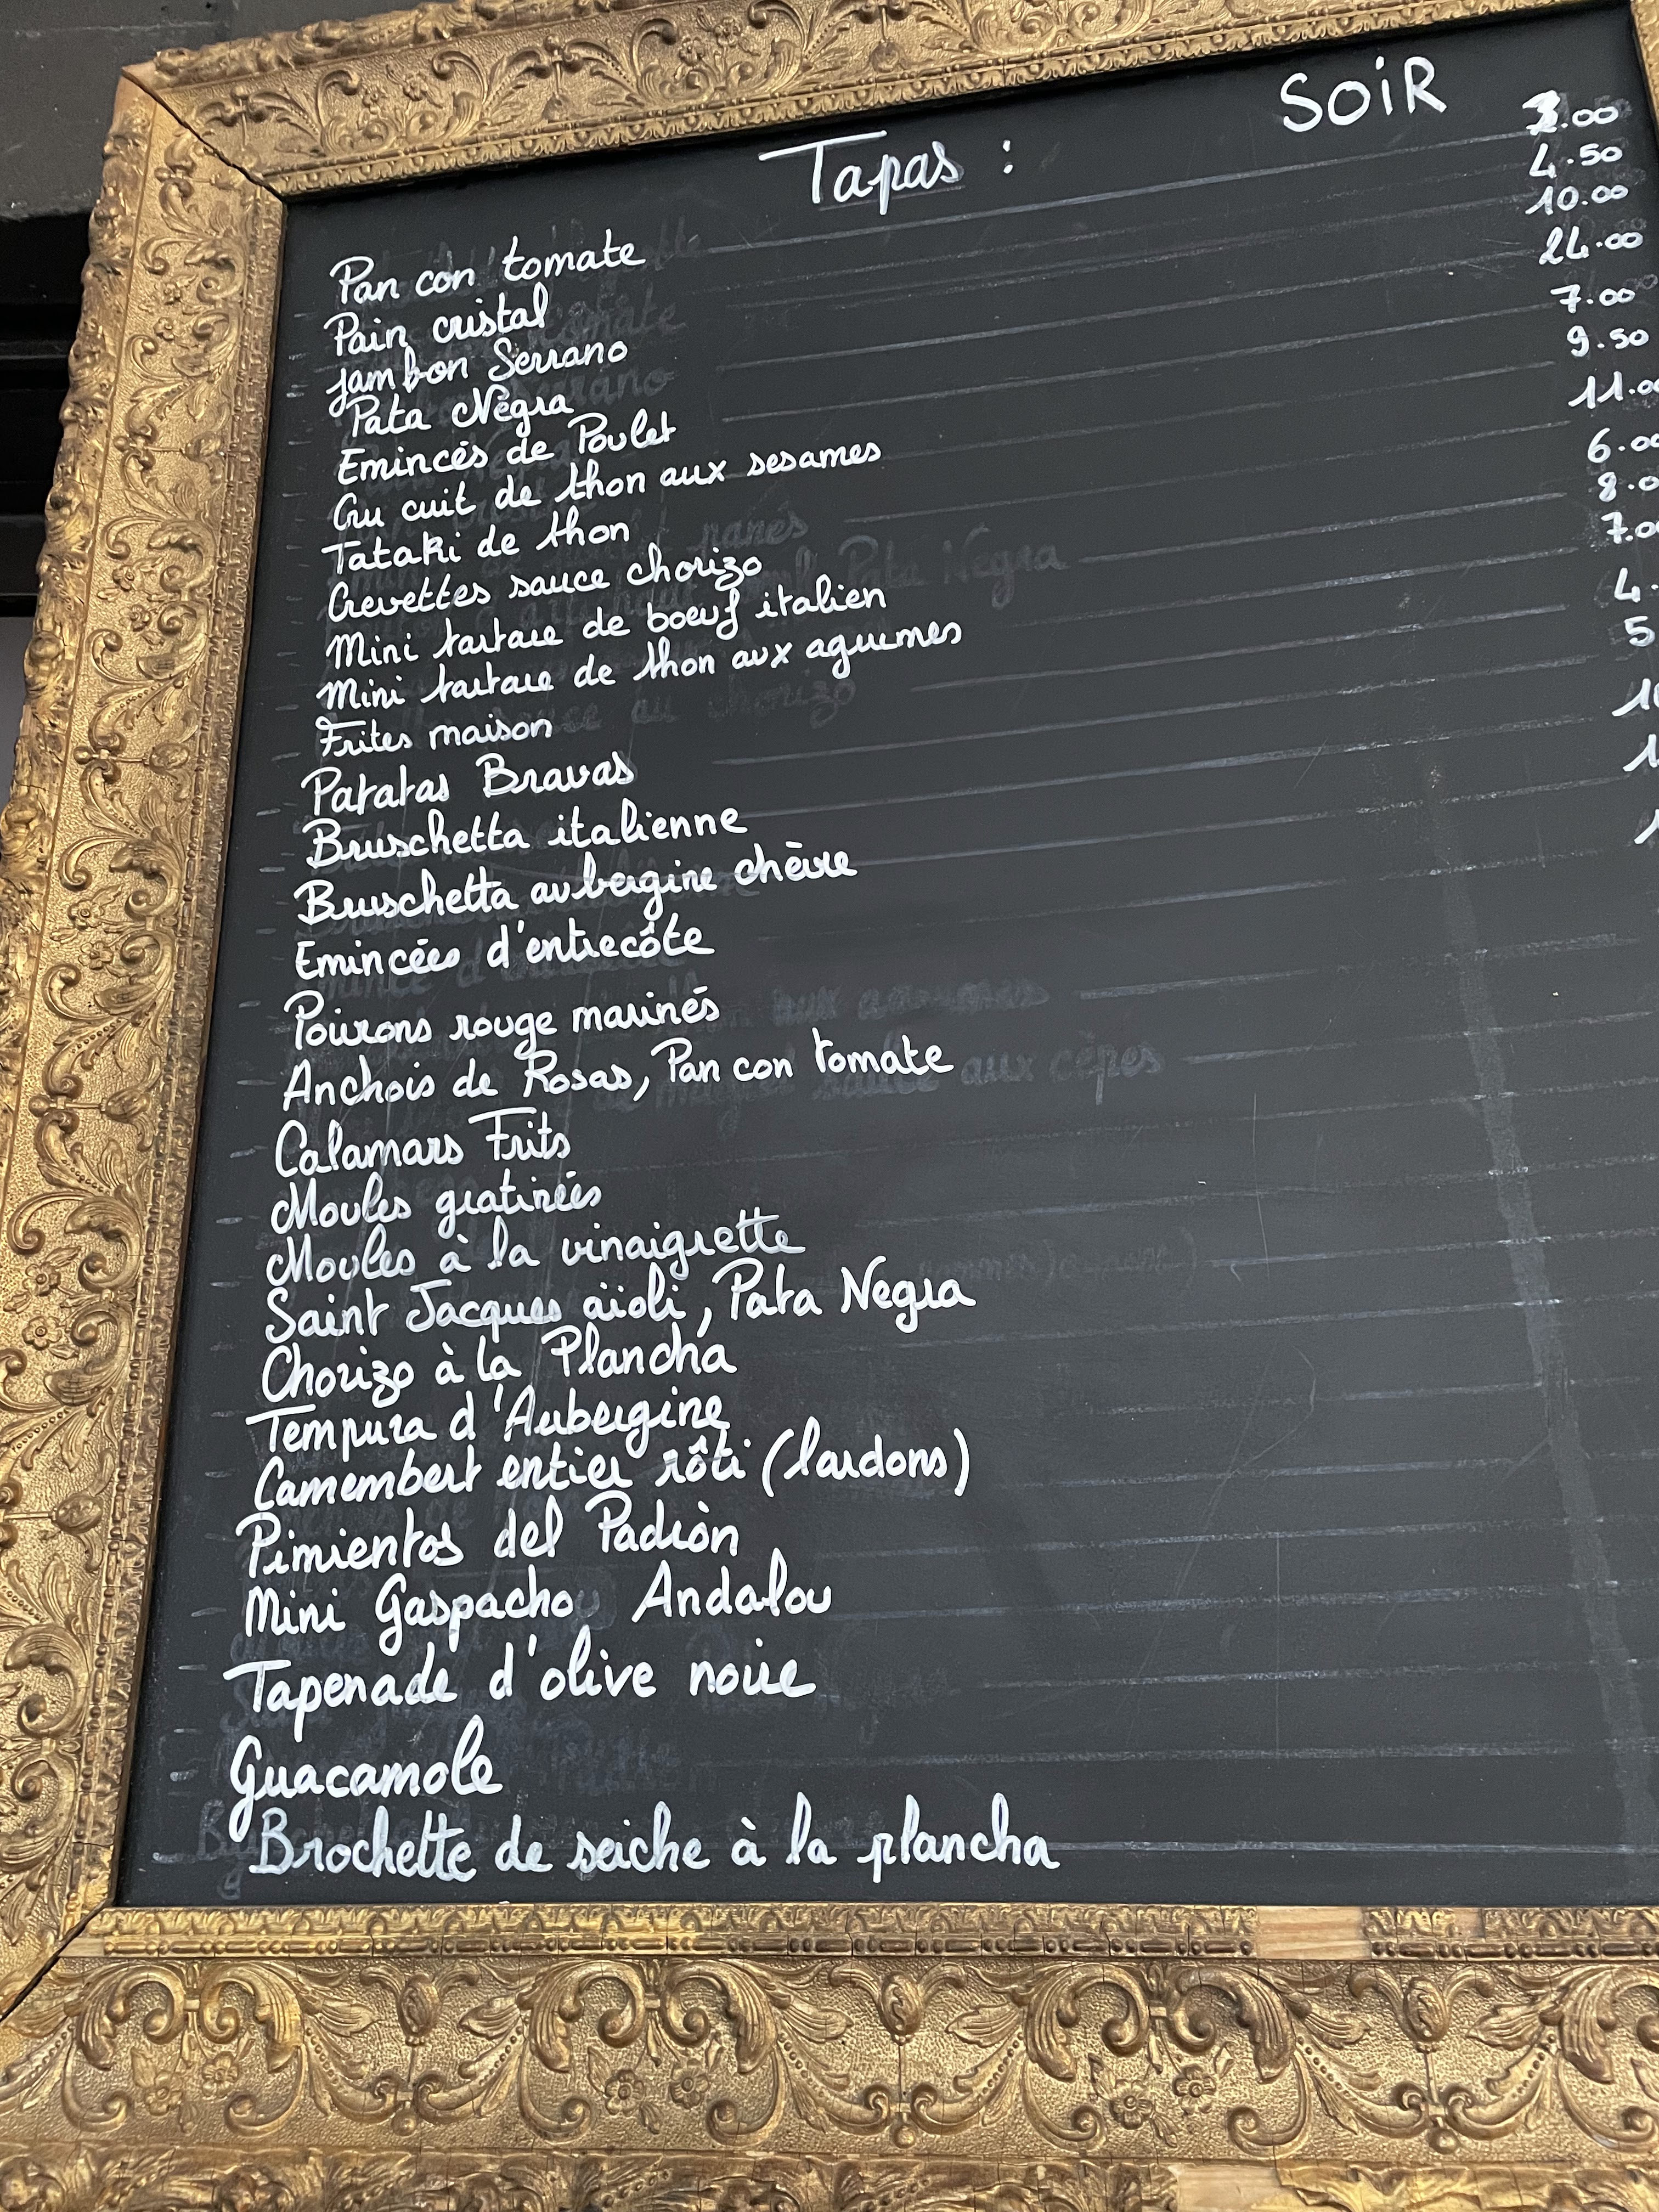 SOIR
Tapas :
Pan con tomate .00
Pain cristal 4.50
Jambon Serrano 10.00
Pata Negra 24.00
Emincés de Poulet 7.00
Cru cuit de thon aux sesames 9.50
Tataki de thon 11.0
Crevettes sauce chorizo 6.00
Mini tartare de boeuf italien 8.0
Mini tartare de thon aux agrumes 7.0
Frites maison 4.
Patatas Bravas 5
Bruschetta italienne
Bruschetta aubergine chèvre
Emincées d'entrecôte
Poivrons rouge marinés
Anchois de Rosas, Pan con tomate
Calamars Frits
Moules gratinées
Moules à la vinaigrette
Saint Jacques aïoli, Pata Negra
Chorizo à la Plancha
Tempura d'Aubergine
Camembert entier rôti (lardons)
Pimientos del Padròn
Mini Gaspacho Andalou
Tapenade d'olive noire
Guacamole
Brochette de seiche à la plancha